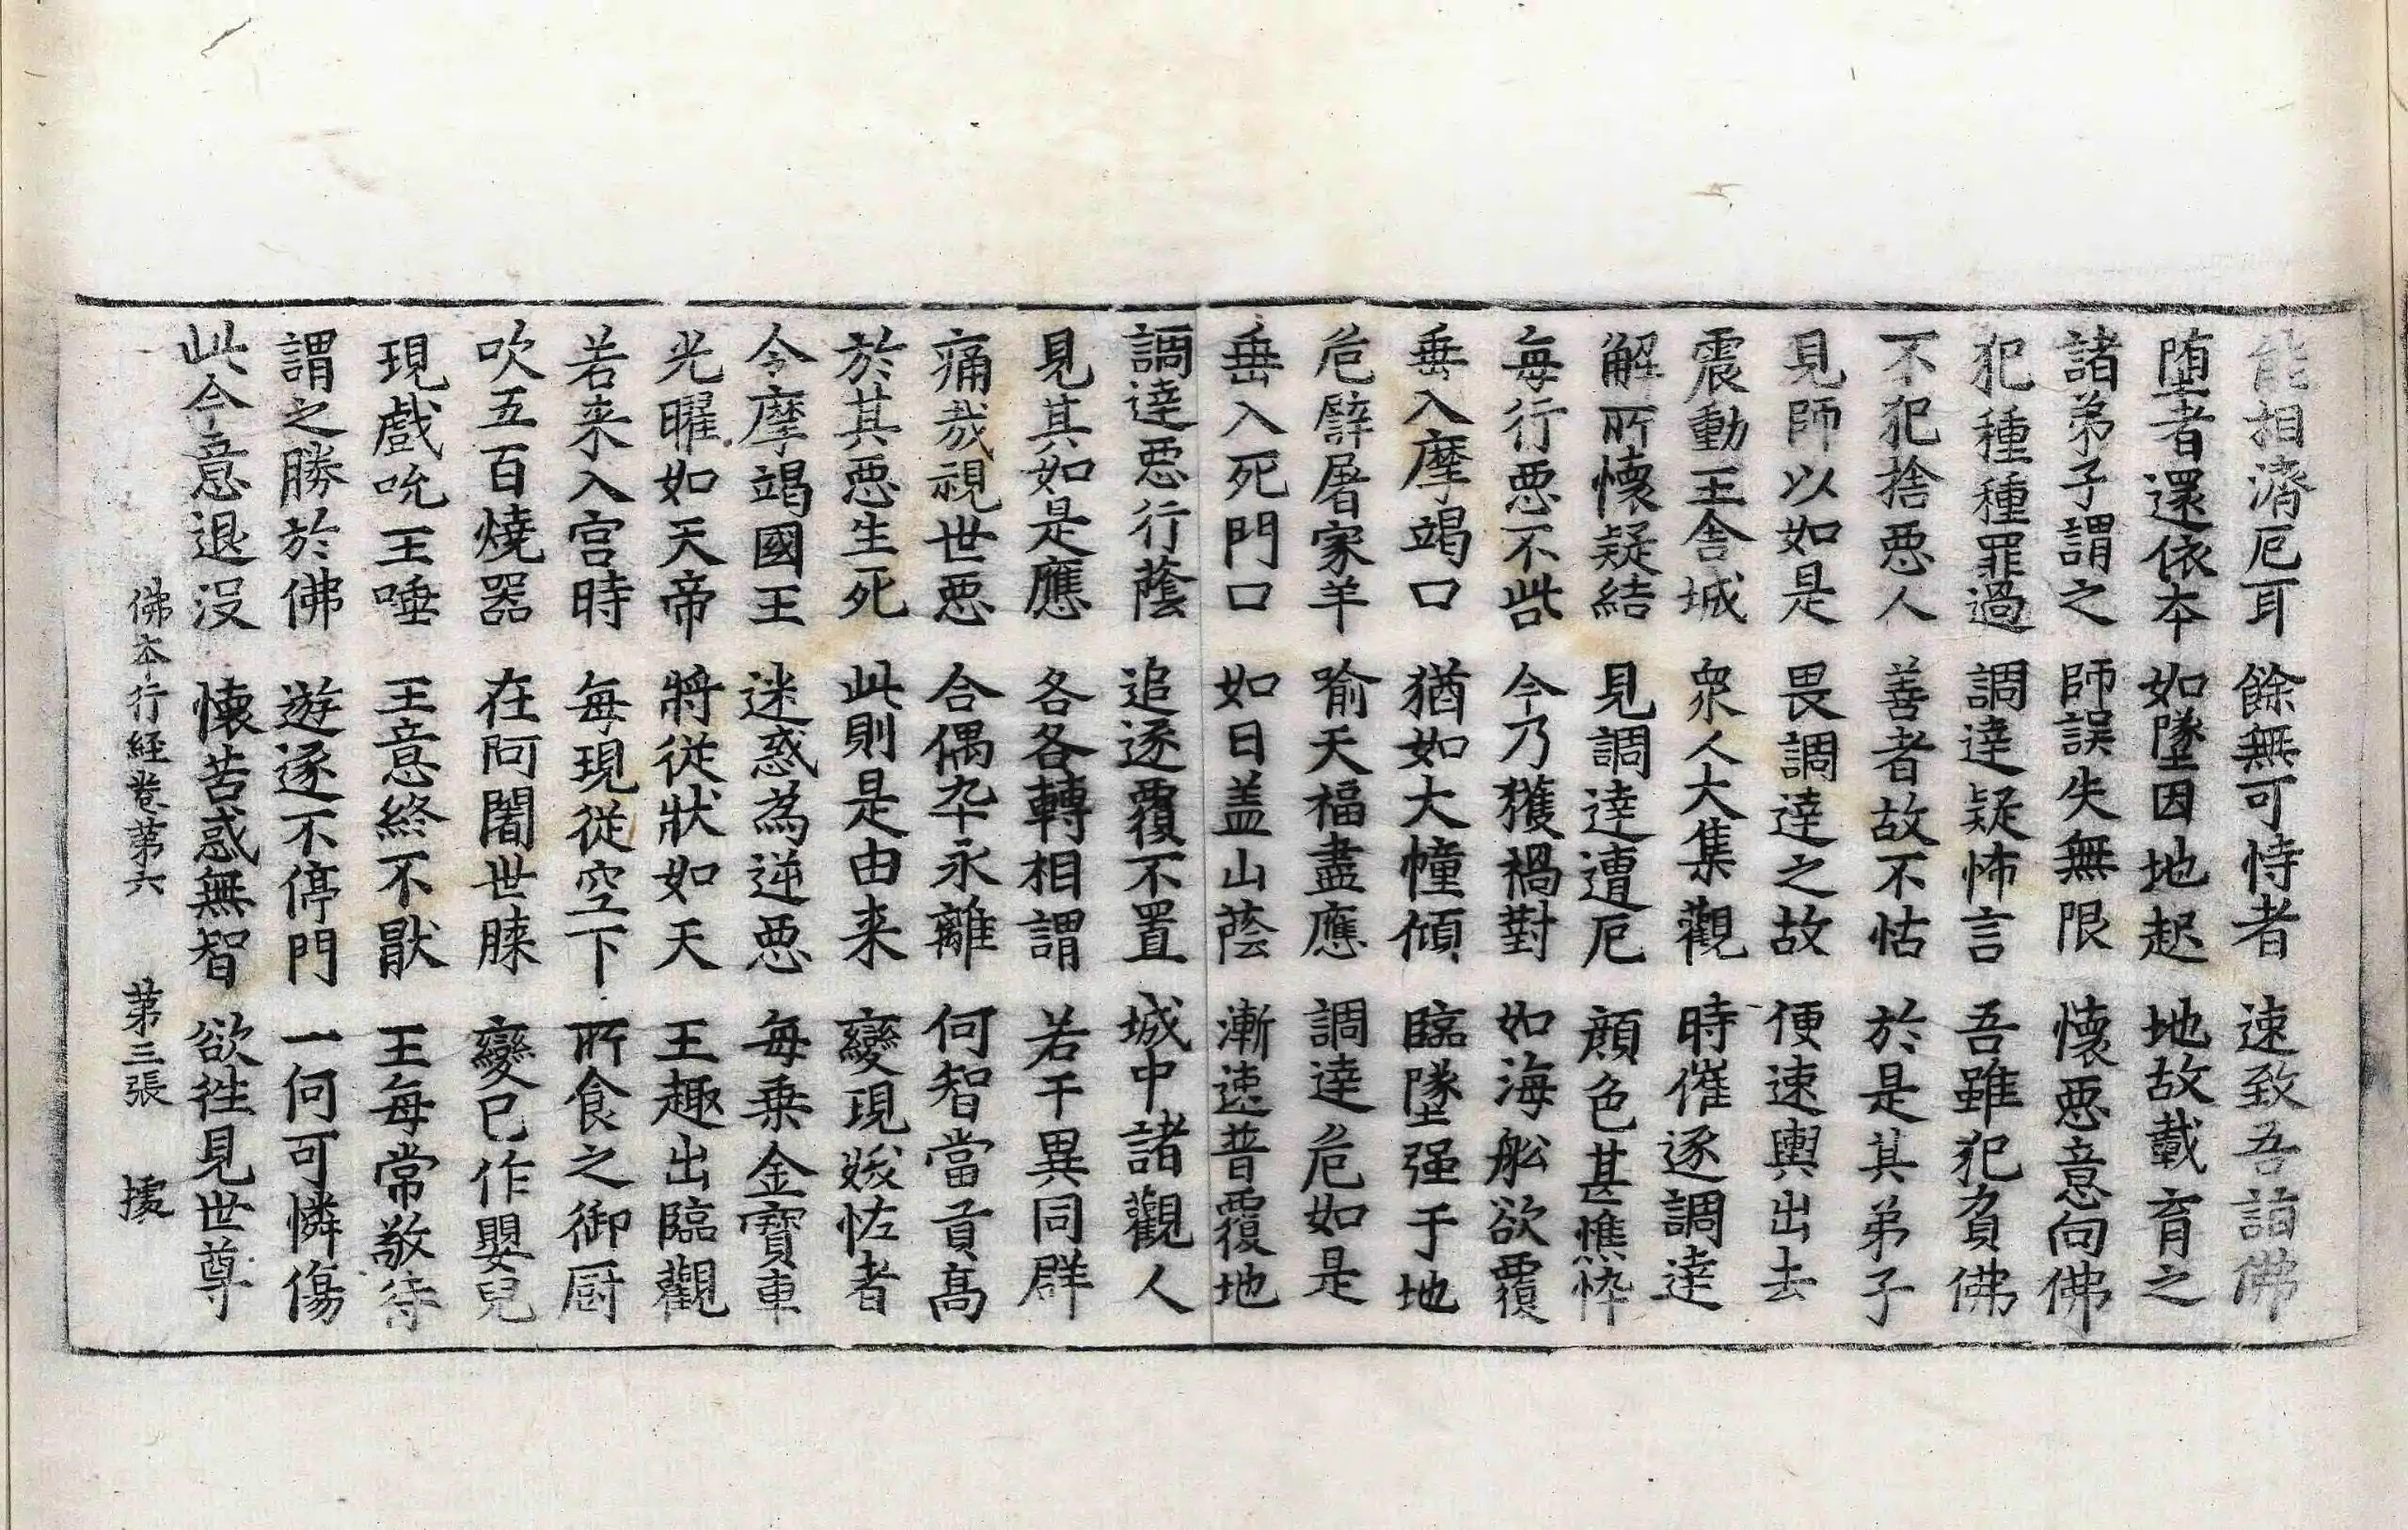 能相濟厄耳　餘無可恃者　速致吾詣佛
墮者還依本　如墜因地起　地故載育之
諸弟子謂之　師誤失無限　懷惡意向佛
犯種種罪過　調達疑怖言　吾雖犯負佛
不犯捨惡人　善者故不怙　於是其弟子
見師以如是　畏調達之故　便速輿出去
震動王舍城　衆人大集觀　時催逐調達
解所懷疑結　見調達遭厄　顔色甚憔悴
每行惡不訾　今乃獲禍對　如海舩欲覆
垂入摩竭口　猶如大幢傾　臨墜强于地
危譬屠家羊　喻天福盡應　調達危如是
垂入死門口　如日盖山蔭　漸速普覆地
調達惡行蔭　追逐覆不置　城中諸觀人
見其如是應　各各轉相謂　若干異同群
痛哉視世惡　合偶卒永離　何智當貢高
於其惡生死　此則是由来　變現姟恠者
令摩竭國王　迷惑為逆惡　每乗金寶車
光曜如天帝　將從狀如天　王趣出臨觀
若来入宮時　每現從空下　所食之御厨
吹五百燒器　在阿闍世膝　變已作嬰兒
現戲吮王唾　王意終不猒　王每常敬待
謂之勝於佛　遊逐不停門　一何可憐傷
此今意退没　懷苦惑無智　欲徃見世尊
佛本行経卷第六　第三張　據